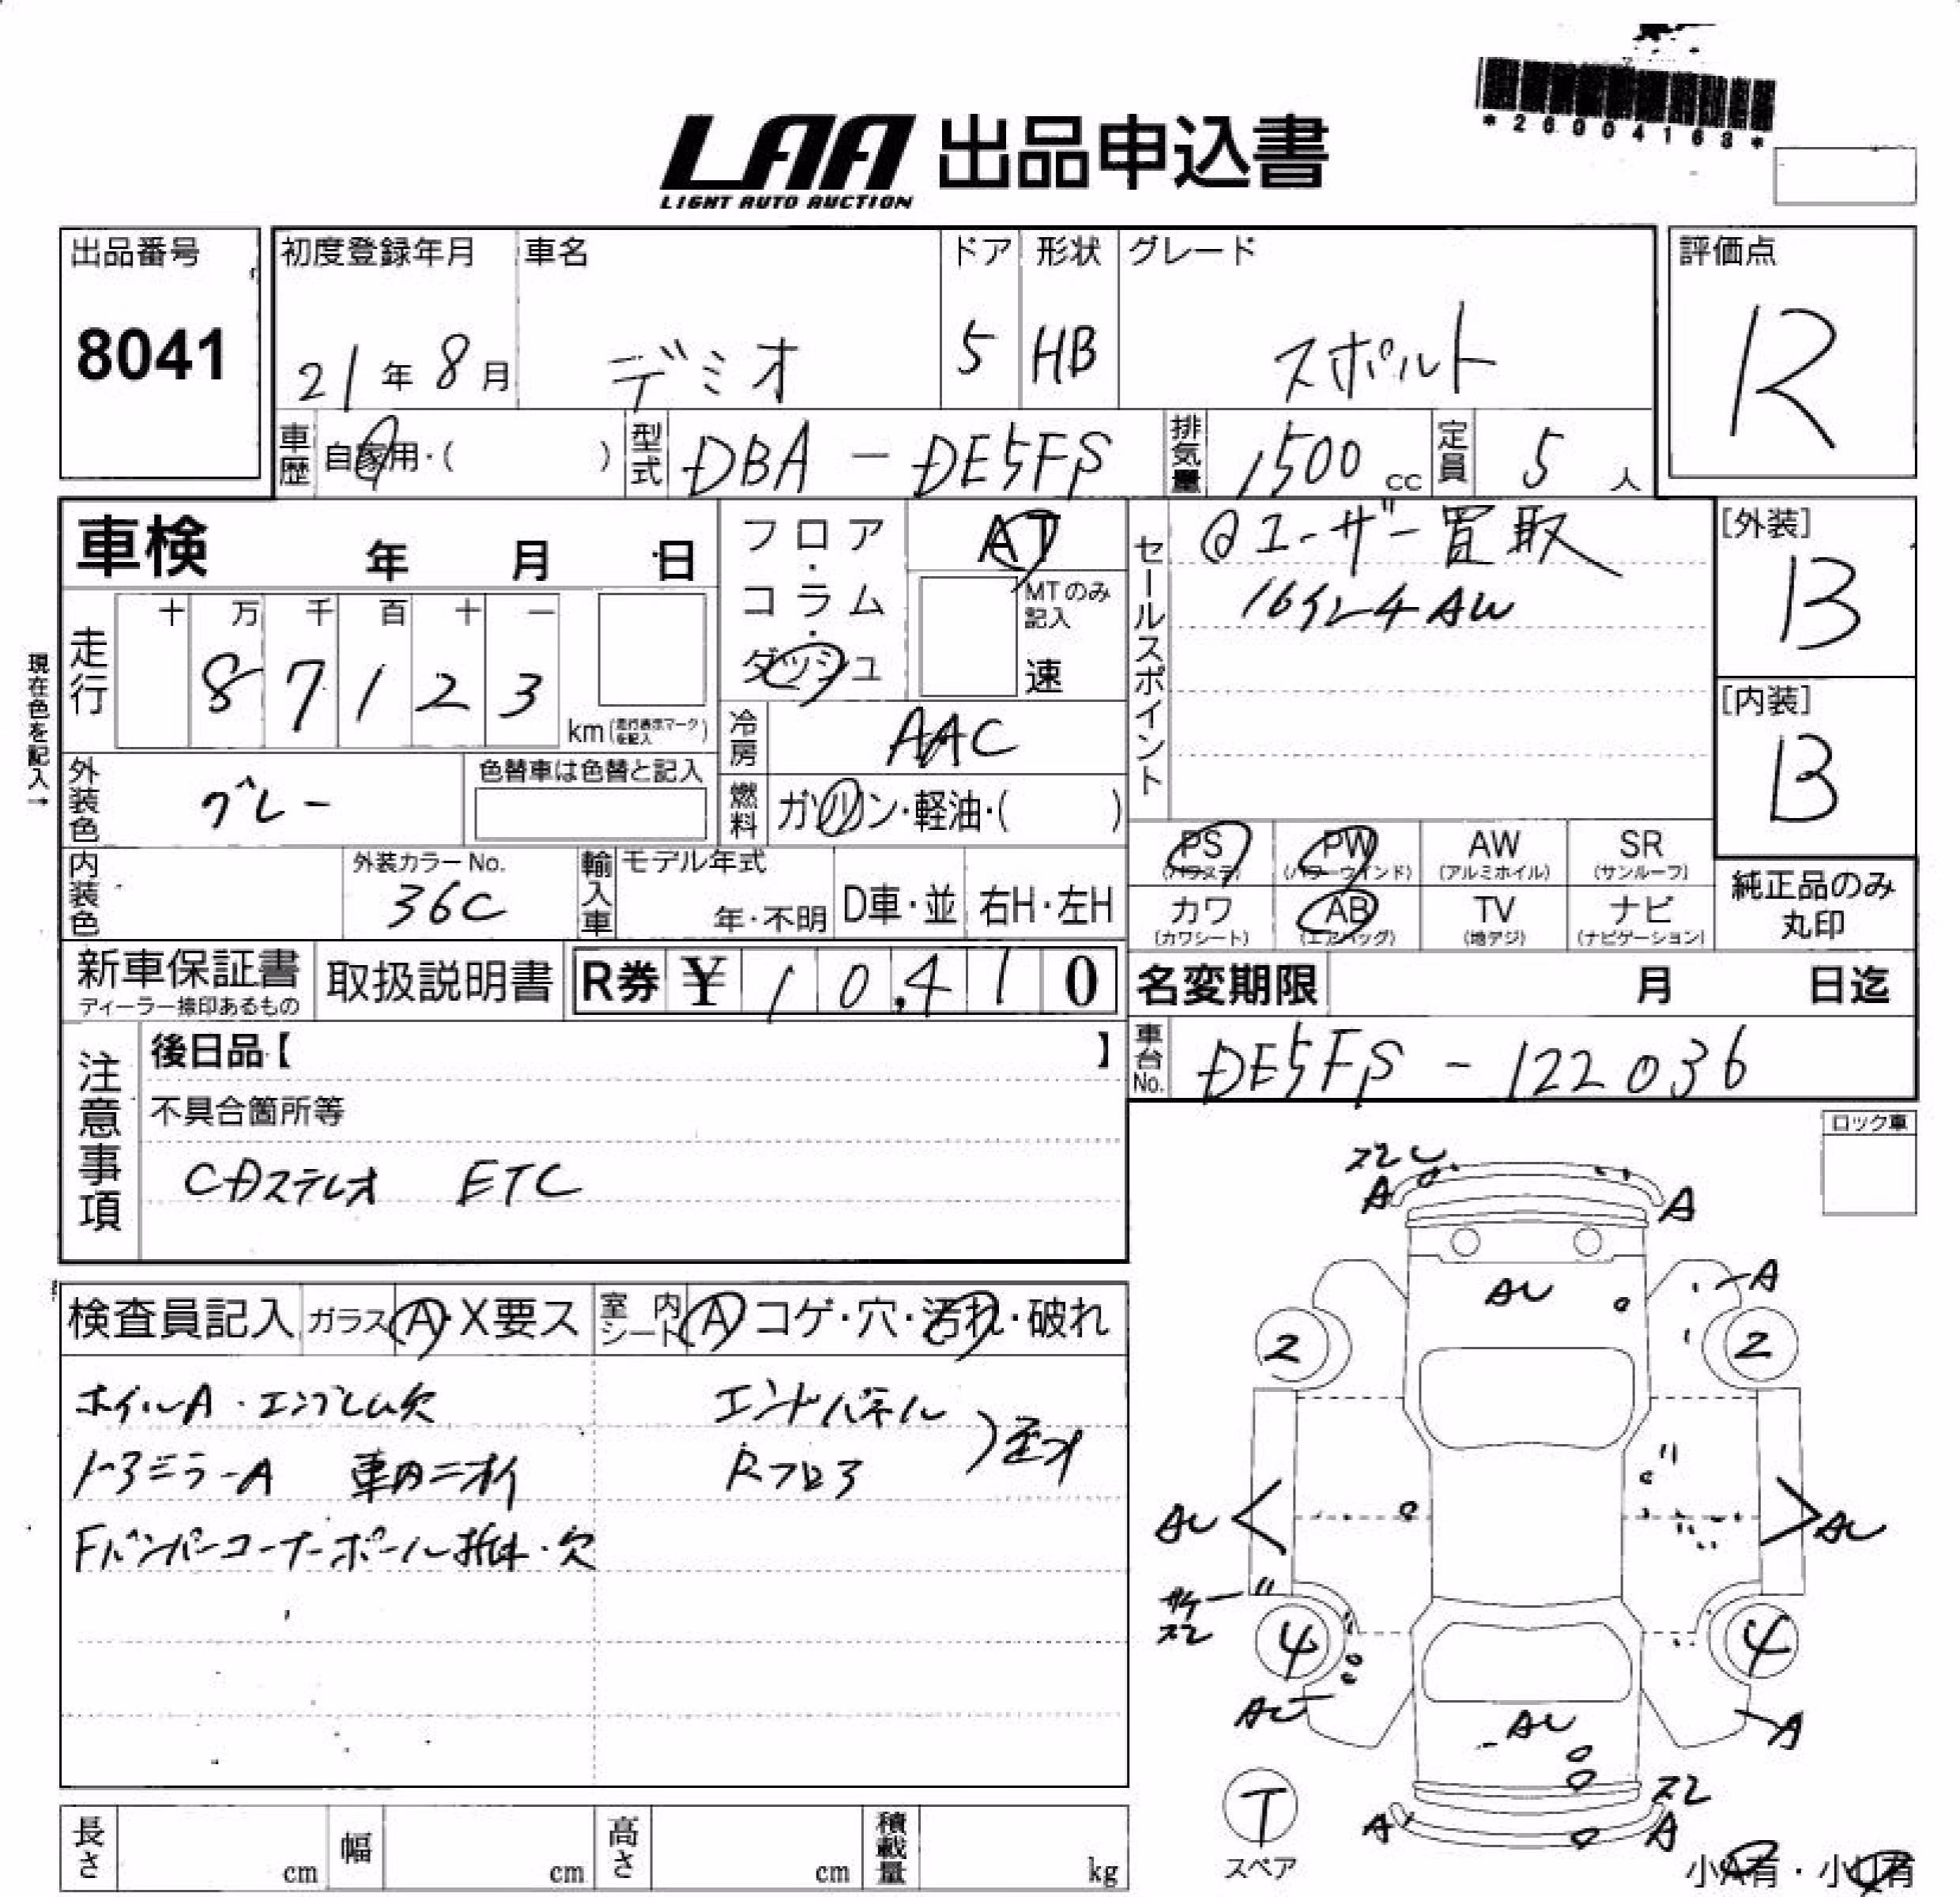 *26004163*
LAA 出品申込書
LIGHT AUTO AUCTION
出品番号 初度登録年月 車名 ドア 形状 グレード 評価点
8041 21年 8月 デミオ 5 HB スポルト R
車歴 自家用・( ) 型式 DBA-DE5FS 排気量 1500cc 定員 5人
車検 年 月 日
フロア・コラム・ダッシュ
AT
MTのみ記入
速
セールスポイント
@ユーザー買取
16インチAW
[外装]
B
[内装]
B
現在色を記入→
走行 十 万 千 百 十 一
8 7 1 2 3
km(走行表示マークを記入)
冷房 AAC
外装色 グレー 色替車は色替と記入
燃料 ガソリン・軽油・( )
PS(パワステ) PW(パワーウインド) AW(アルミホイル) SR(サンルーフ)
カワ(カワシート) AB(エアバッグ) TV(地デジ) ナビ(ナビゲーション)
純正品のみ丸印
内装色 外装カラーNo. 36C 輸入車 モデル年式 年・不明 D車・並 右H・左H
新車保証書 ディーラー捺印あるもの 取扱説明書 R券 ¥ 10,410
名変期限 月 日迄
車台No. DE5FS-122036
注意事項
後日品【 】
不具合箇所等
CDステレオ ETC
ロック車
検査員記入 ガラス A・X要ス 室内シート A コゲ・穴・汚れ・破れ
ホイルA・エンブレム欠
ドアミラーA 車内ニオイ
Fバンパーコーナーポール折れ・欠
エンドパネル
Rフロア
歪み
スレ
A
A
AU
A
2
2
AU
AU
サケ
スレ
4
4
AU
AU
A
T
スペア
スレ
A
A
小A有・小U有
長さ cm 幅 cm 高さ cm 積載量 kg